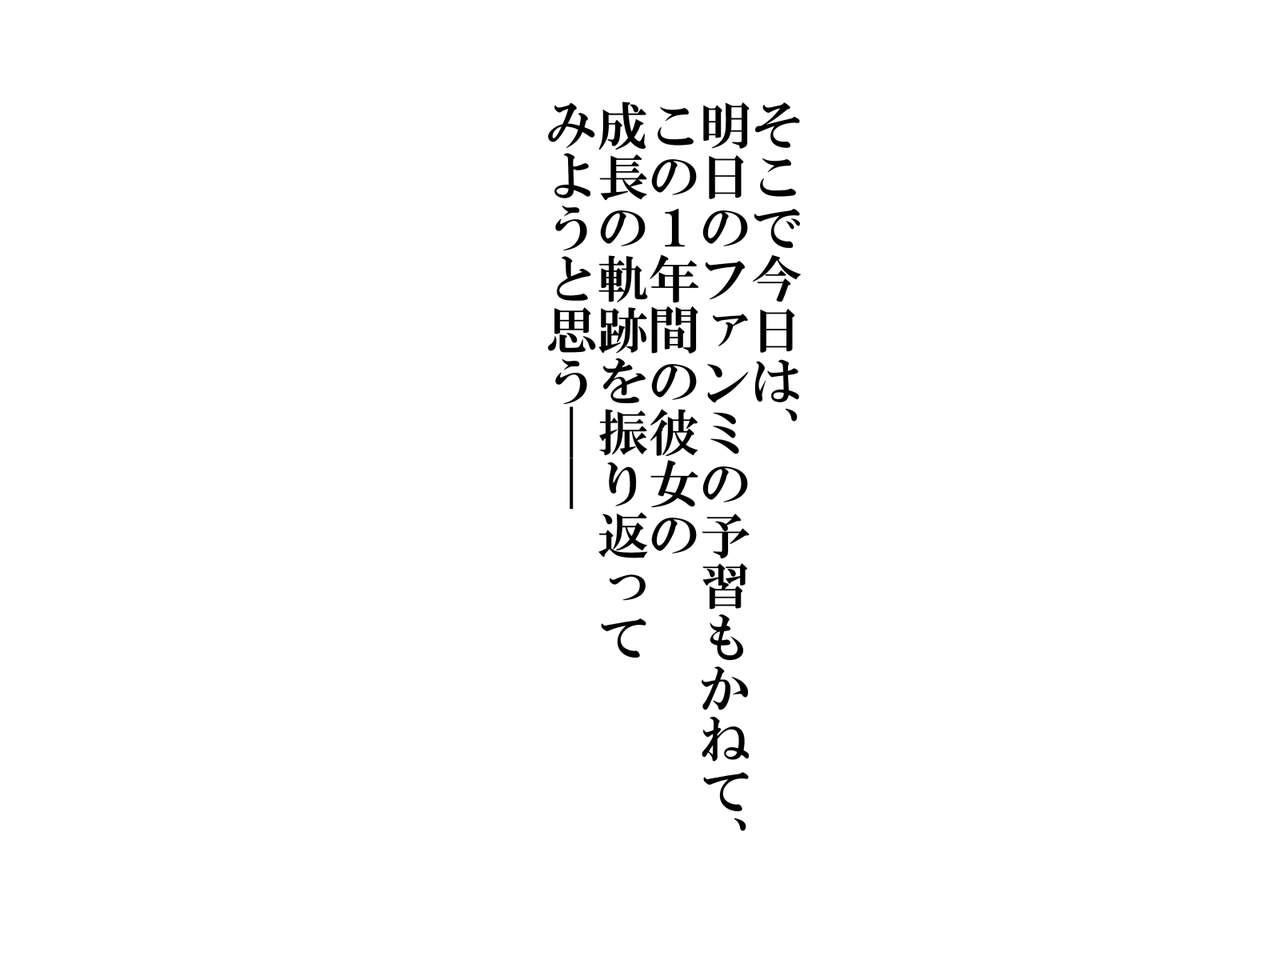 そこで今日は、
明日のファンミの予習もかねて、
この１年間の彼女の
成長の軌跡を振り返って
みようと思う――